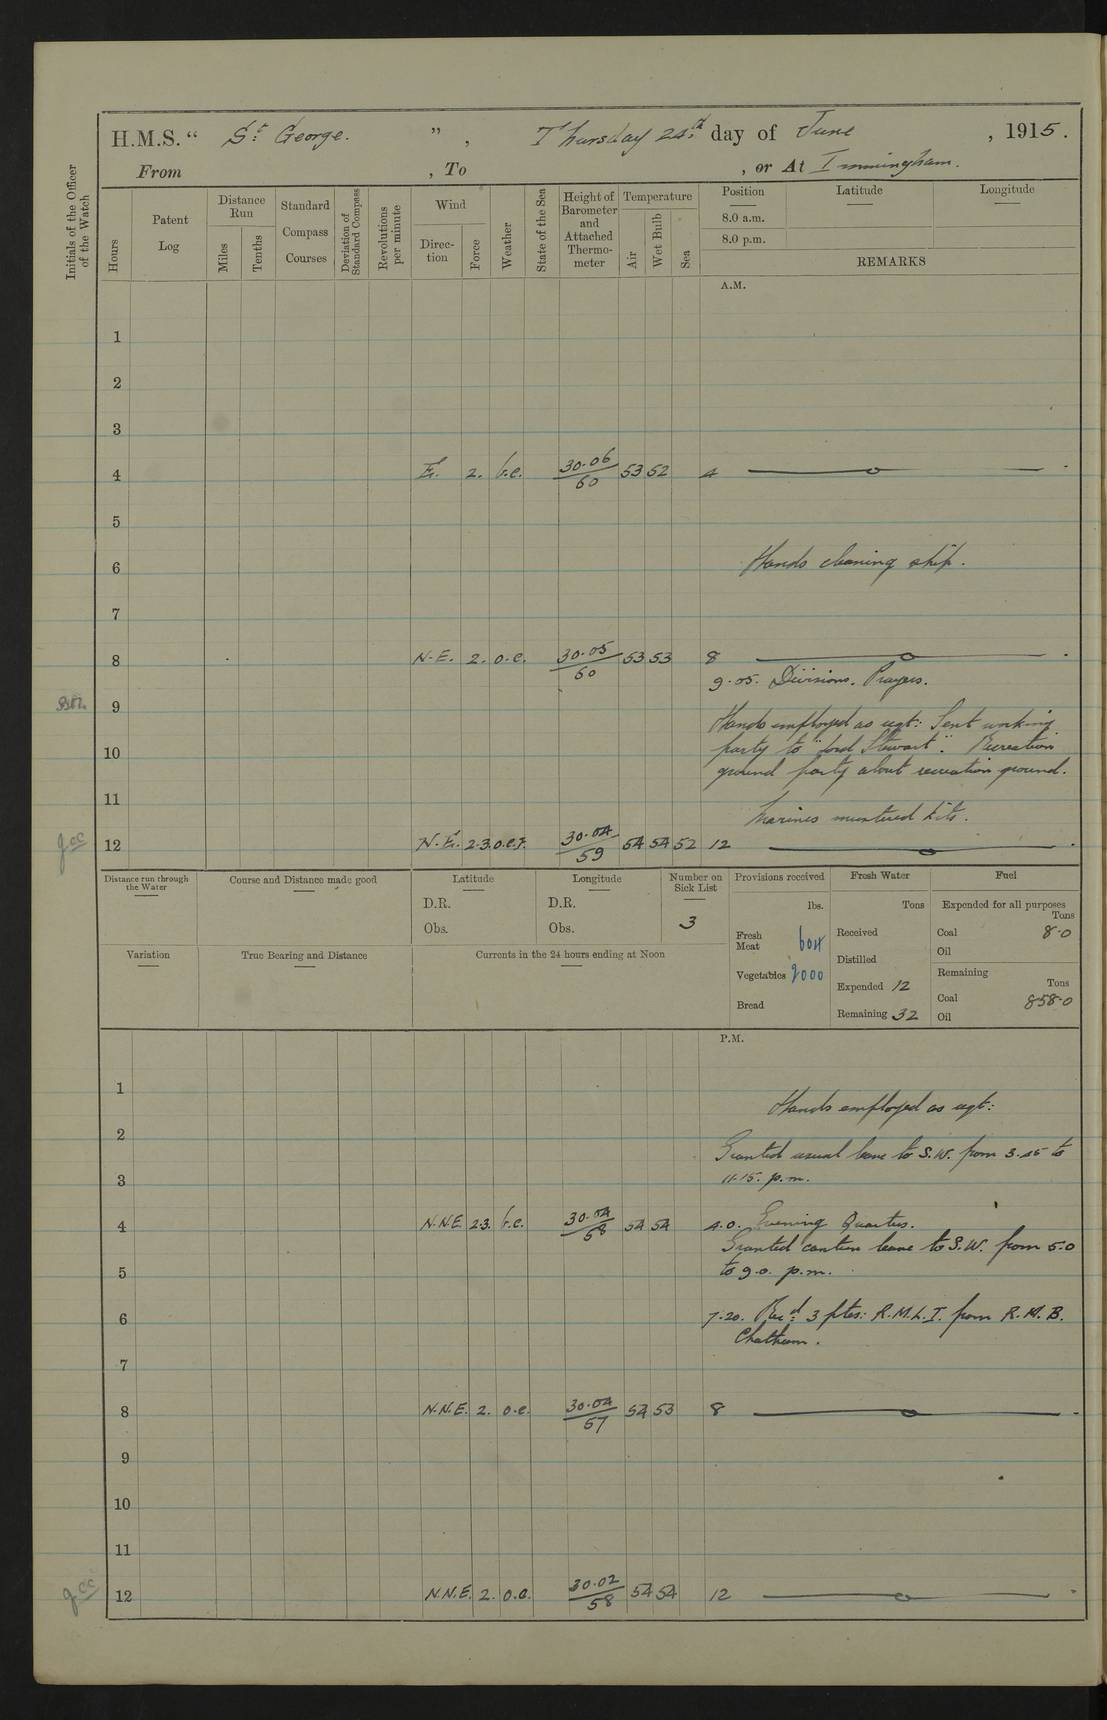 H.M.S. “ St. George. ” , Thursday 24th day of June , 1915.
From , To , or At Immingham.
Initials of the Officer of the Watch
Hours
Patent Log
Distance Run
Miles
Tenths
Standard Compass Courses
Deviation of Standard Compass
Revolutions per minute
Wind
Direction
Force
Weather
State of the Sea
Height of Barometer and Attached Thermometer
Temperature
Air
Wet Bulb
Sea
Position Latitude Longitude
8.0 a.m.
8.0 p.m.
REMARKS
A.M.
1
2
3
4 E. 2. b.c. 30.06/60 53 52 4
5
6 Hands cleaning ship.
7
8 N.E. 2. o.c. 30.05/60 53 53 8
9.05. Divisions. Prayers.
9
Hands employed as reqt: Sent working
10 party to "Lord Stewart". Recreation
ground party about recreation ground.
11
Marines mustered kits.
12 N.E. 2.3. o.c.f. 30.04/59 54 54 52 12
Distance run through the Water
Course and Distance made good
Latitude
D.R.
Obs.
Longitude
D.R.
Obs.
Number on Sick List
3
Provisions received
lbs.
Fresh Meat 604
Vegetables 2000
Bread
Fresh Water
Tons
Received
Distilled
Expended 12
Remaining 32
Fuel
Expended for all purposes
Tons
Coal 8.0
Oil
Remaining
Tons
Coal 858.0
Oil
Variation
True Bearing and Distance
Currents in the 24 hours ending at Noon
P.M.
1
Hands employed as reqt:
2
Granted usual leave to S.W. from 3.45 to
3 11.15. p.m.
4 N.N.E. 2.3. b.c. 30.04/58 54 54 4.0. Evening Quarters.
Granted canteen leave to S.W. from 5.0
5 to 9.0. p.m.
6 7.20. Recd: 3 ptes: R.M.L.I. from R.M.B.
Chatham.
7
8 N.N.E. 2. o.c. 30.04/57 54 53 8
9
10
11
12 N.N.E. 2. o.c. 30.02/58 54 54 12